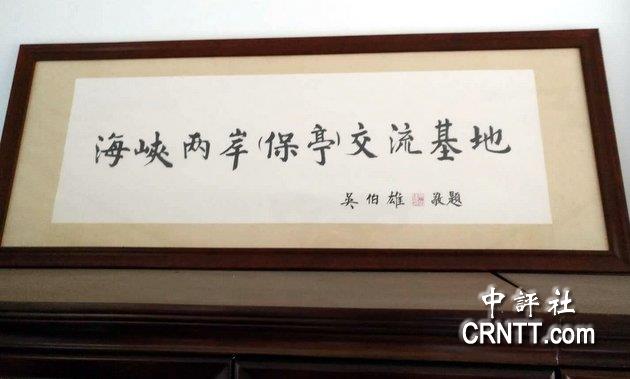 海峽两岸(保亭)交流基地
吴伯雄 敬題
中評社
CRNTT.com